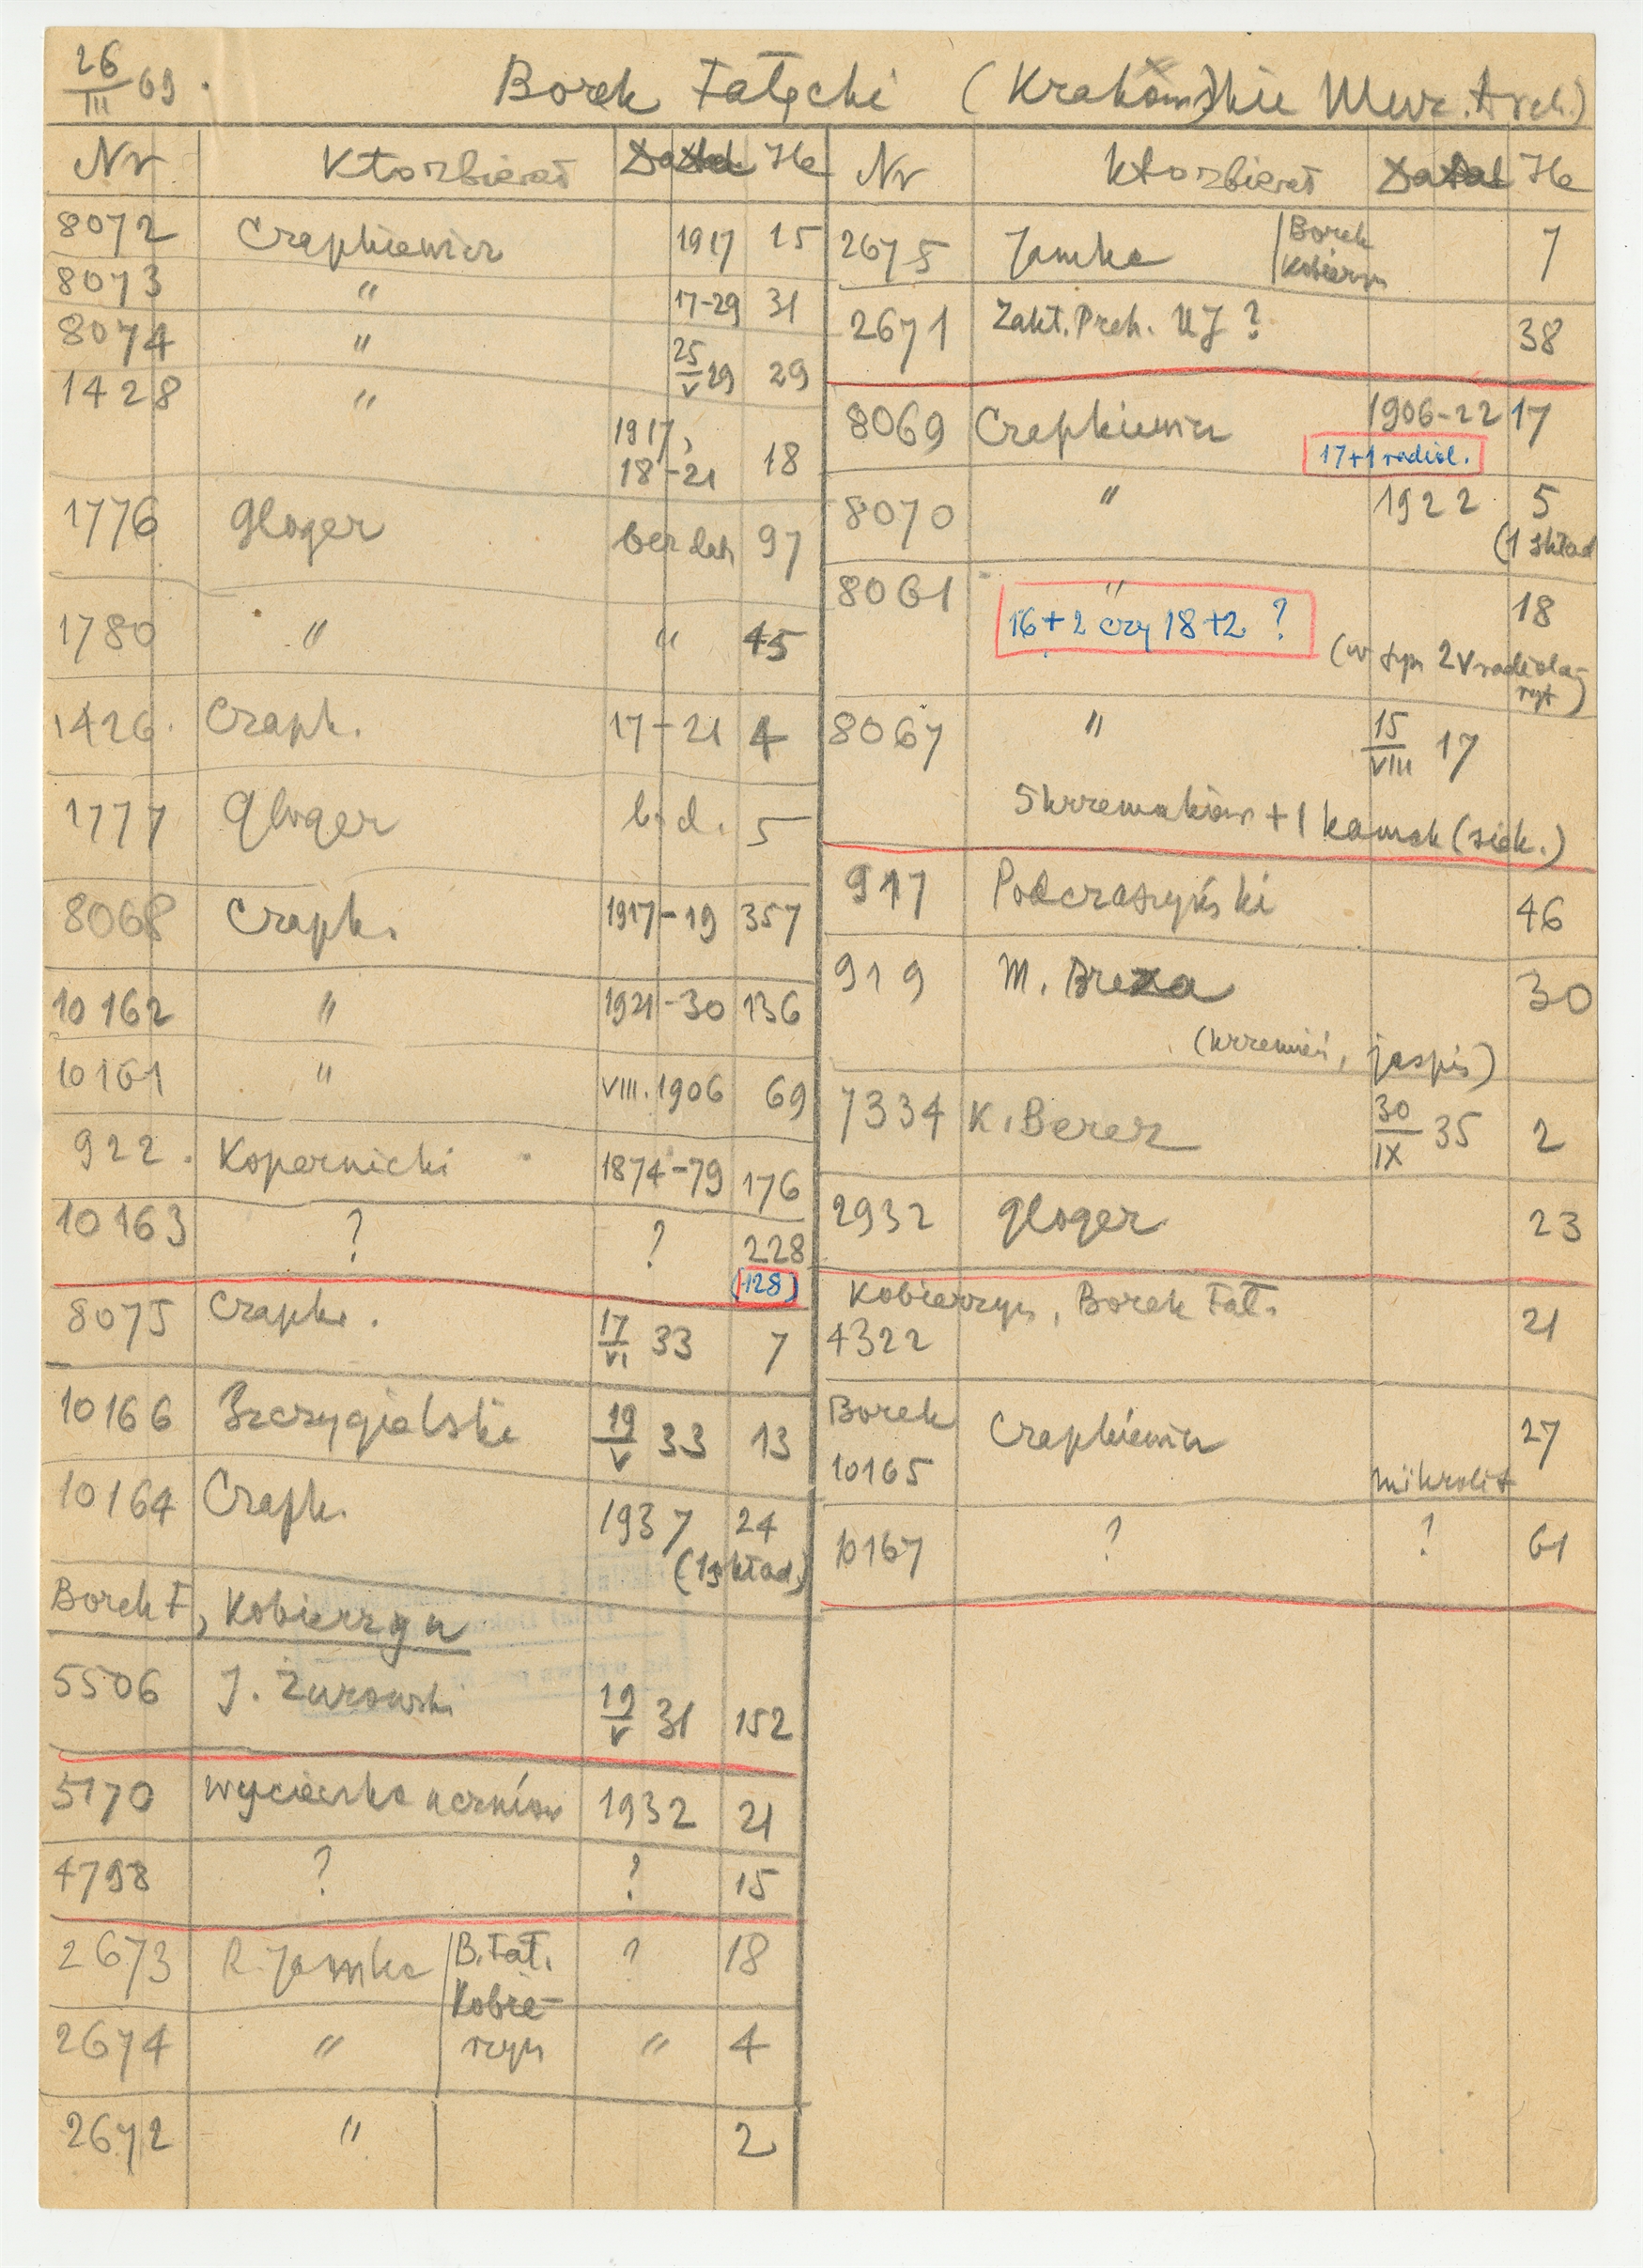 26/III 69. Borek Fałęcki (Krakowskie Muz. Arch.)
Nr Kto zbierał Data Ile
8072 Czapkiewicz 1917 15
8073 " 17-29 31
8074 " 25/V 29 29
1428 "
1917,
18-21 18
1776 Gloger bez daty 97
1780 " " 45
1426. Czapk. 17-21 4
1777 Gloger b.d. 5
8068 Czapk. 1917-19 357
10162 " 1921-30 136
10161 " VIII.1906 69
922. Kopernicki 1874-79 176
10163 ? ? 228
(128)
8075 Czapk. 17/VI 33 7
10166 Szczygielski 19/V 33 13
10164 Czapk. 1937 24
(1 skład)
Borek F, Kobierzyn
5506 J. Żurowski 19/V 31 152
5170 wycieczka uczniów 1932 21
4798 ? ? 15
2673 R. Jamka B. Fał. ? 18
Kobie-
2674 " rzyn " 4
2672 " 2
Nr Kto zbierał Data Ile
2675 Jamka Borek 7
Kobierzyn
2671 Zakł. Preh. UJ ? 38
8069 Czapkiewicz 1906-22 17
17+1 radiol.
8070 " 1922 5
(1 skład
8061 " 18
16+2 czy 18+2 ?
(w tym 2 radiola-
ryt)
8067 " 15/VIII 17
5 krzemaków + 1 kamak (siek.)
917 Podczaszyński 46
919 M. Breza 30
(krzemień, jaspis)
7334 K. Berez 30/IX 35 2
2932 Gloger 23
Kobierzyn, Borek Fał.
4322 21
Borek Czapkiewicz 27
10165 mikrolit
10167 ? ? 61